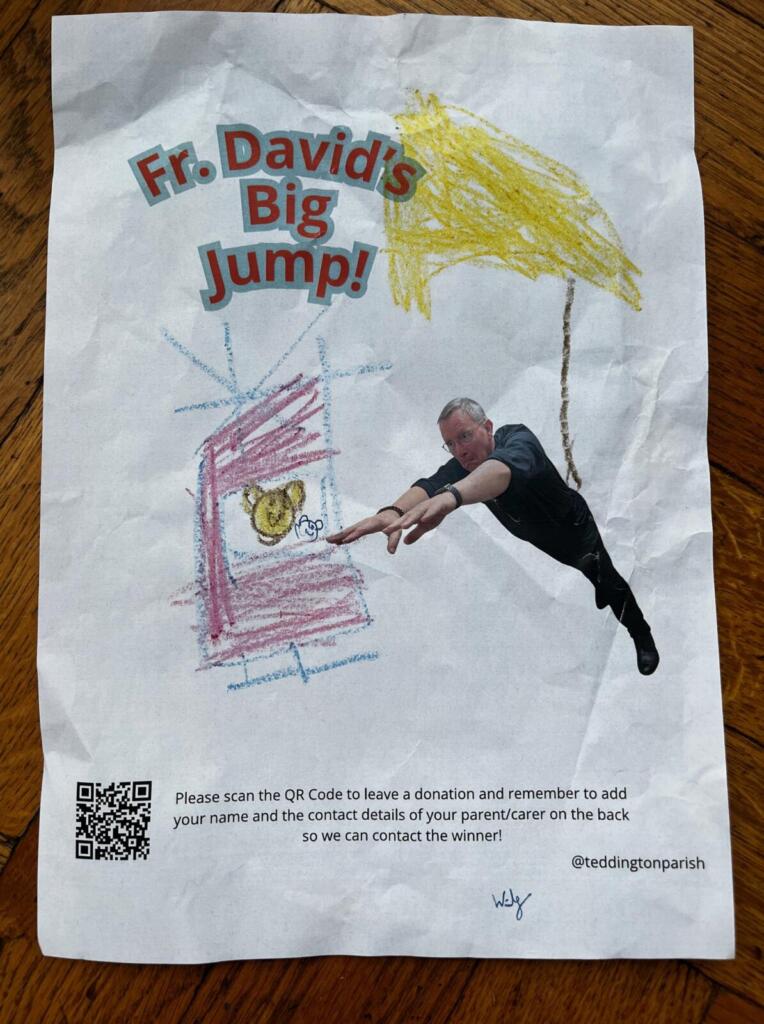 Fr. David's
Big
Jump!
Please scan the QR Code to leave a donation and remember to add
your name and the contact details of your parent/carer on the back
so we can contact the winner!
@teddingtonparish